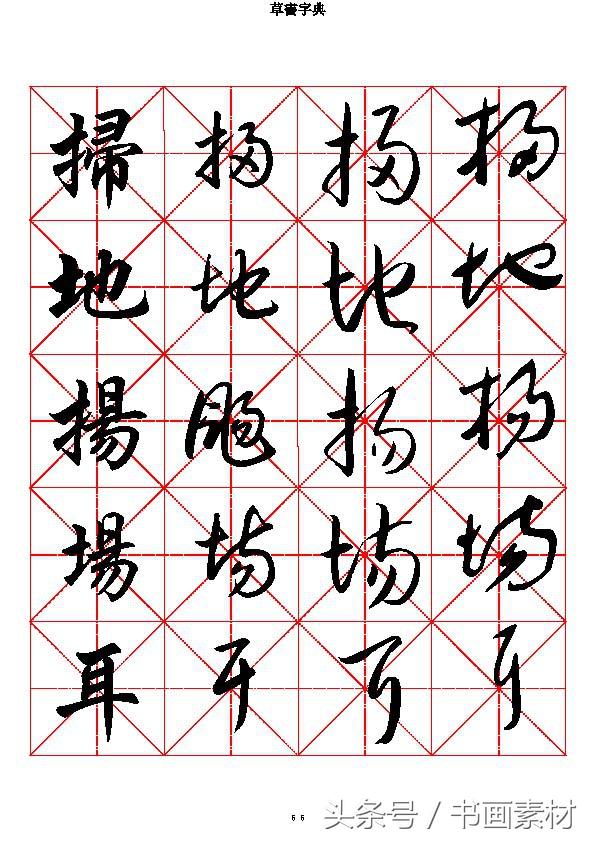 草書字典
掃 掃 掃 掃
地 地 地 地
揚 颺 揚 揚
場 場 場 場
耳 耳 耳 耳
66
头条号 / 书画素材